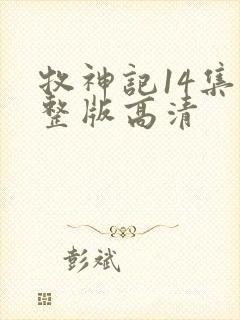 牧神記14集
整版高清
彭斌